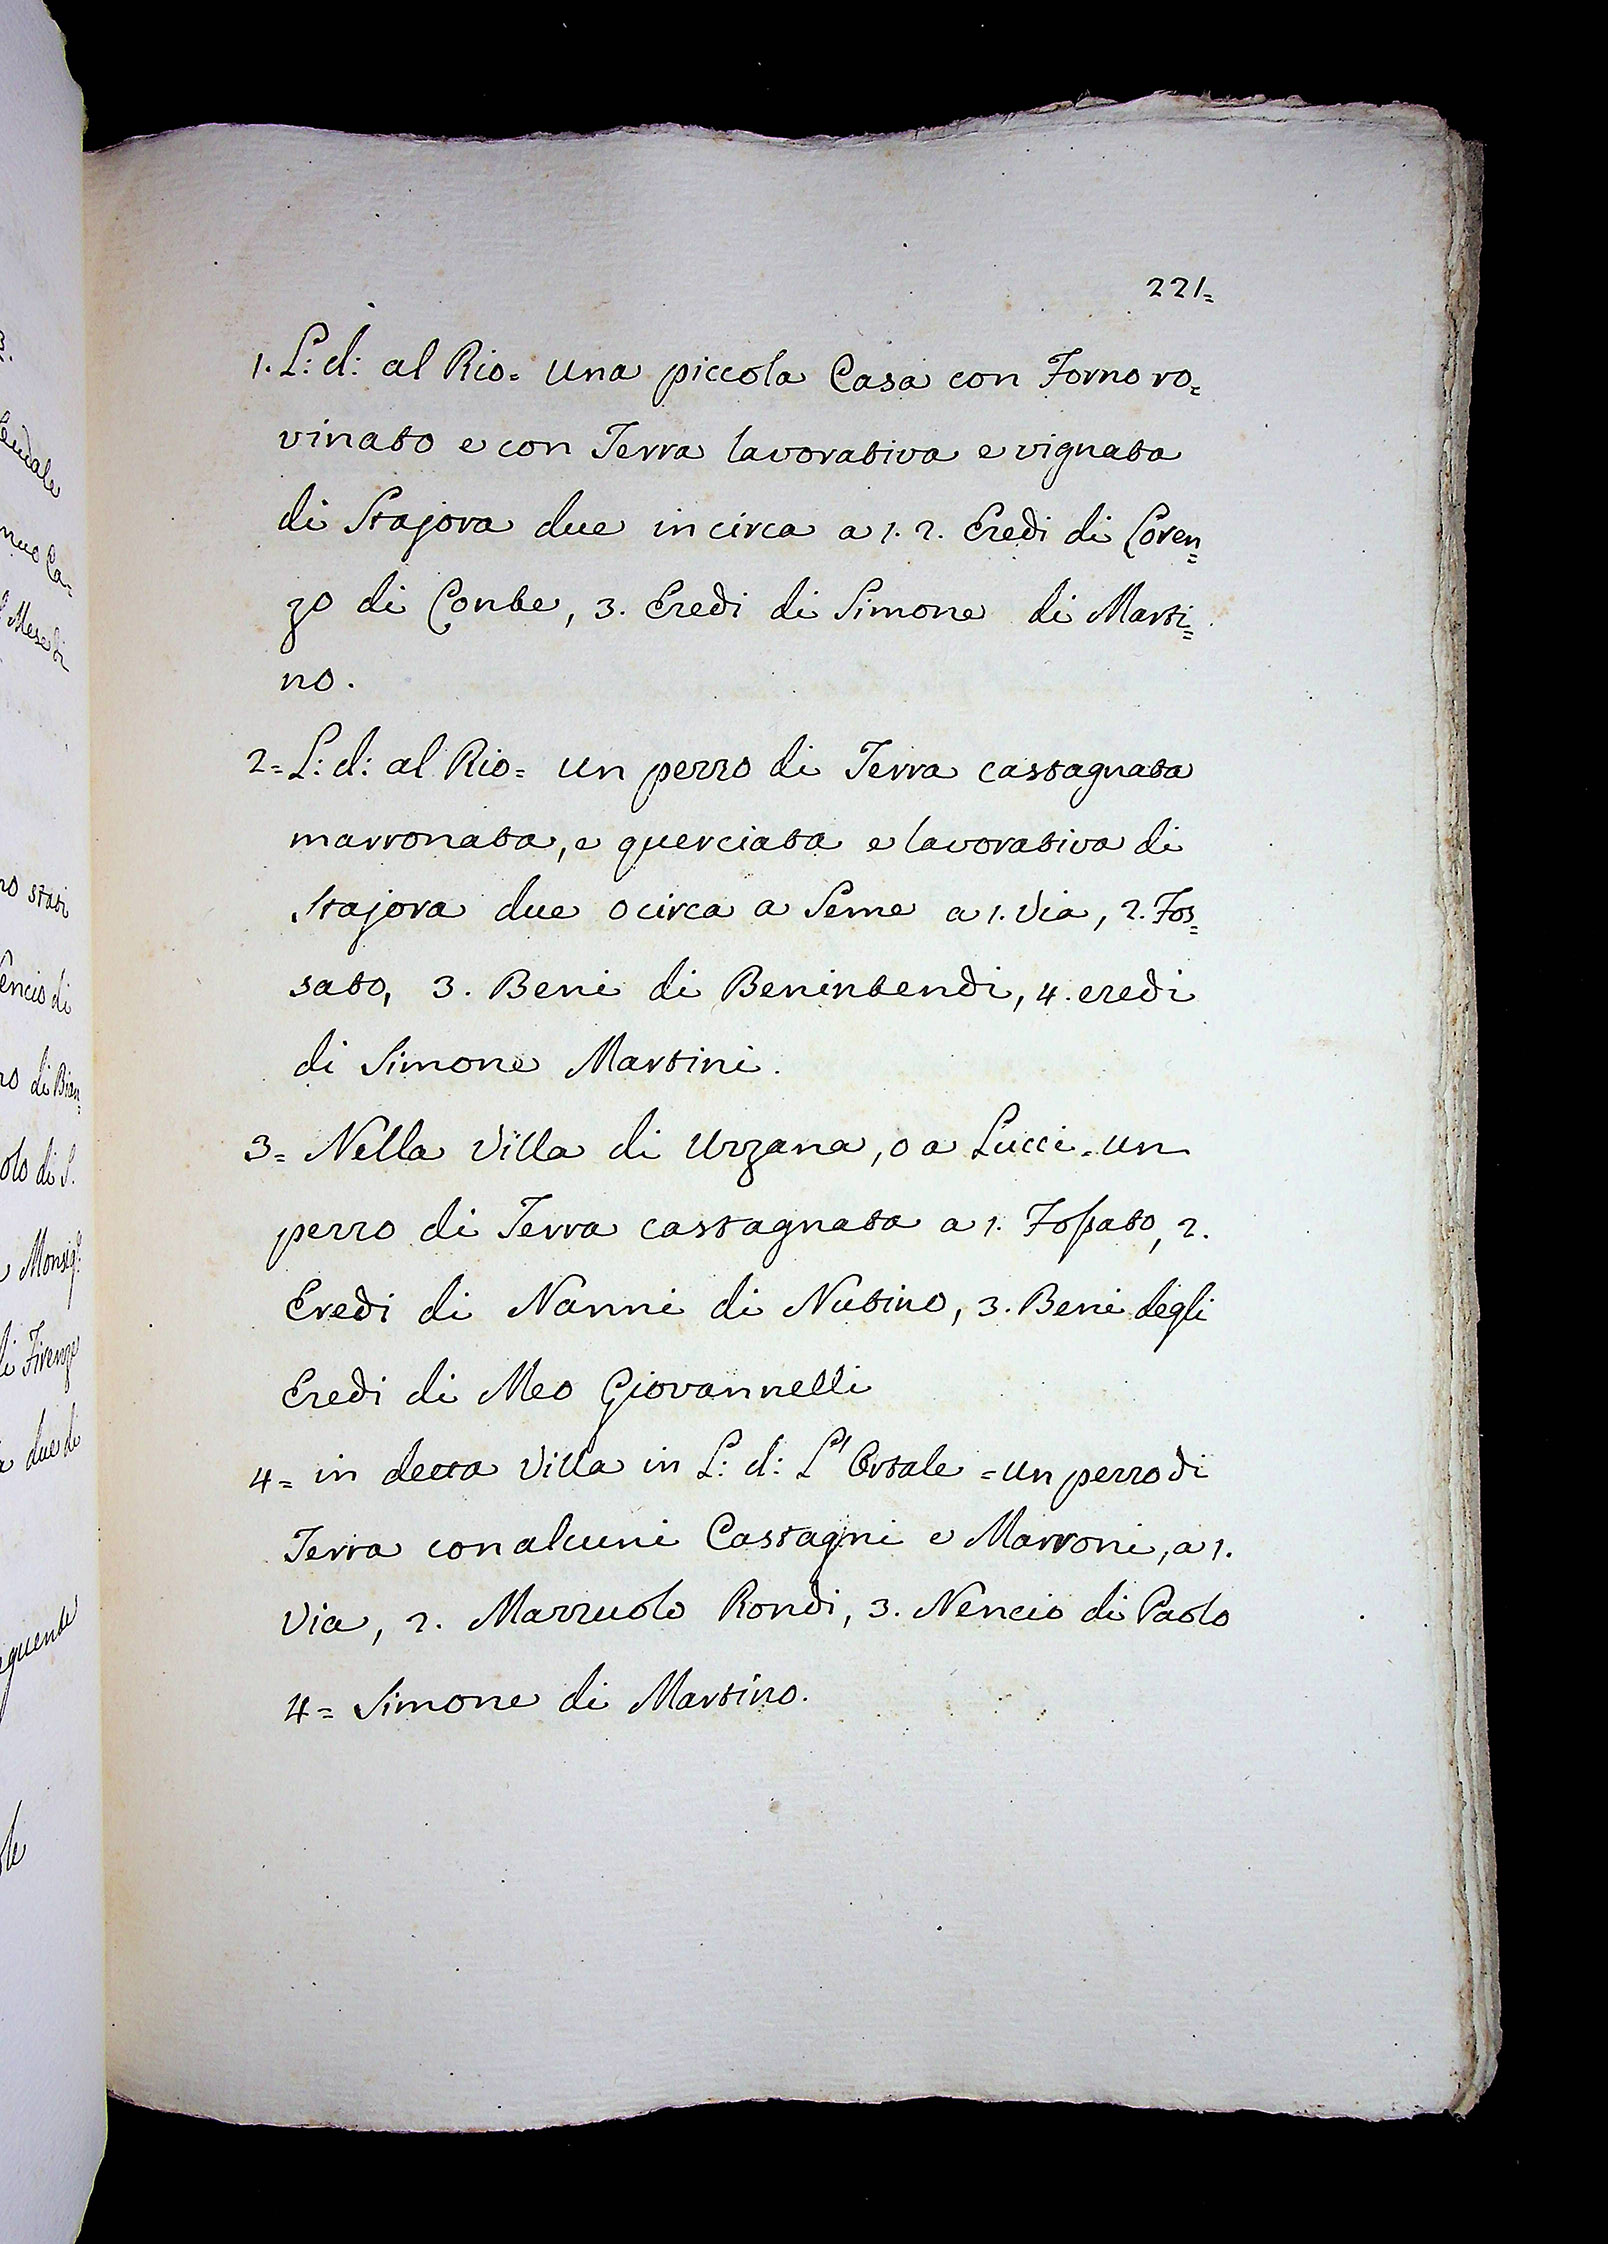 221=
1. L: d: al Rio= una piccola Casa con Forno ro=
vinato e con Terra lavorativa e vignata
di Stajora due in circa a 1. 2. Eredi di Loren=
zo di Conte, 3. Eredi di Simone di Marti=
no.
2= L: d: al Rio= un pezzo di Terra castagnata
marronata, e querciata e lavorativa di
Stajora due o circa a Seme a 1. Via, 2. Fos=
sato, 3. Beni di Benintendi, 4. eredi
di Simone Martini.
3= Nella Villa di Uzzana, o a Lucci= un
pezzo di Terra castagnata a 1. Fossato, 2.
Eredi di Nanni di Nutino, 3. Beni degli
Eredi di Meo Giovannelli
4= in detta Villa in L: d: L' Ortale = un pezzo di
Terra con alcuni Castagni e Marroni, a 1.
Via, 2. Mazzuolo Rondi, 3. Nencio di Paolo
4= Simone di Martino.
no stati
encio di
no di Bian=
olo di S.
Monsig.e
di Firenze
due di